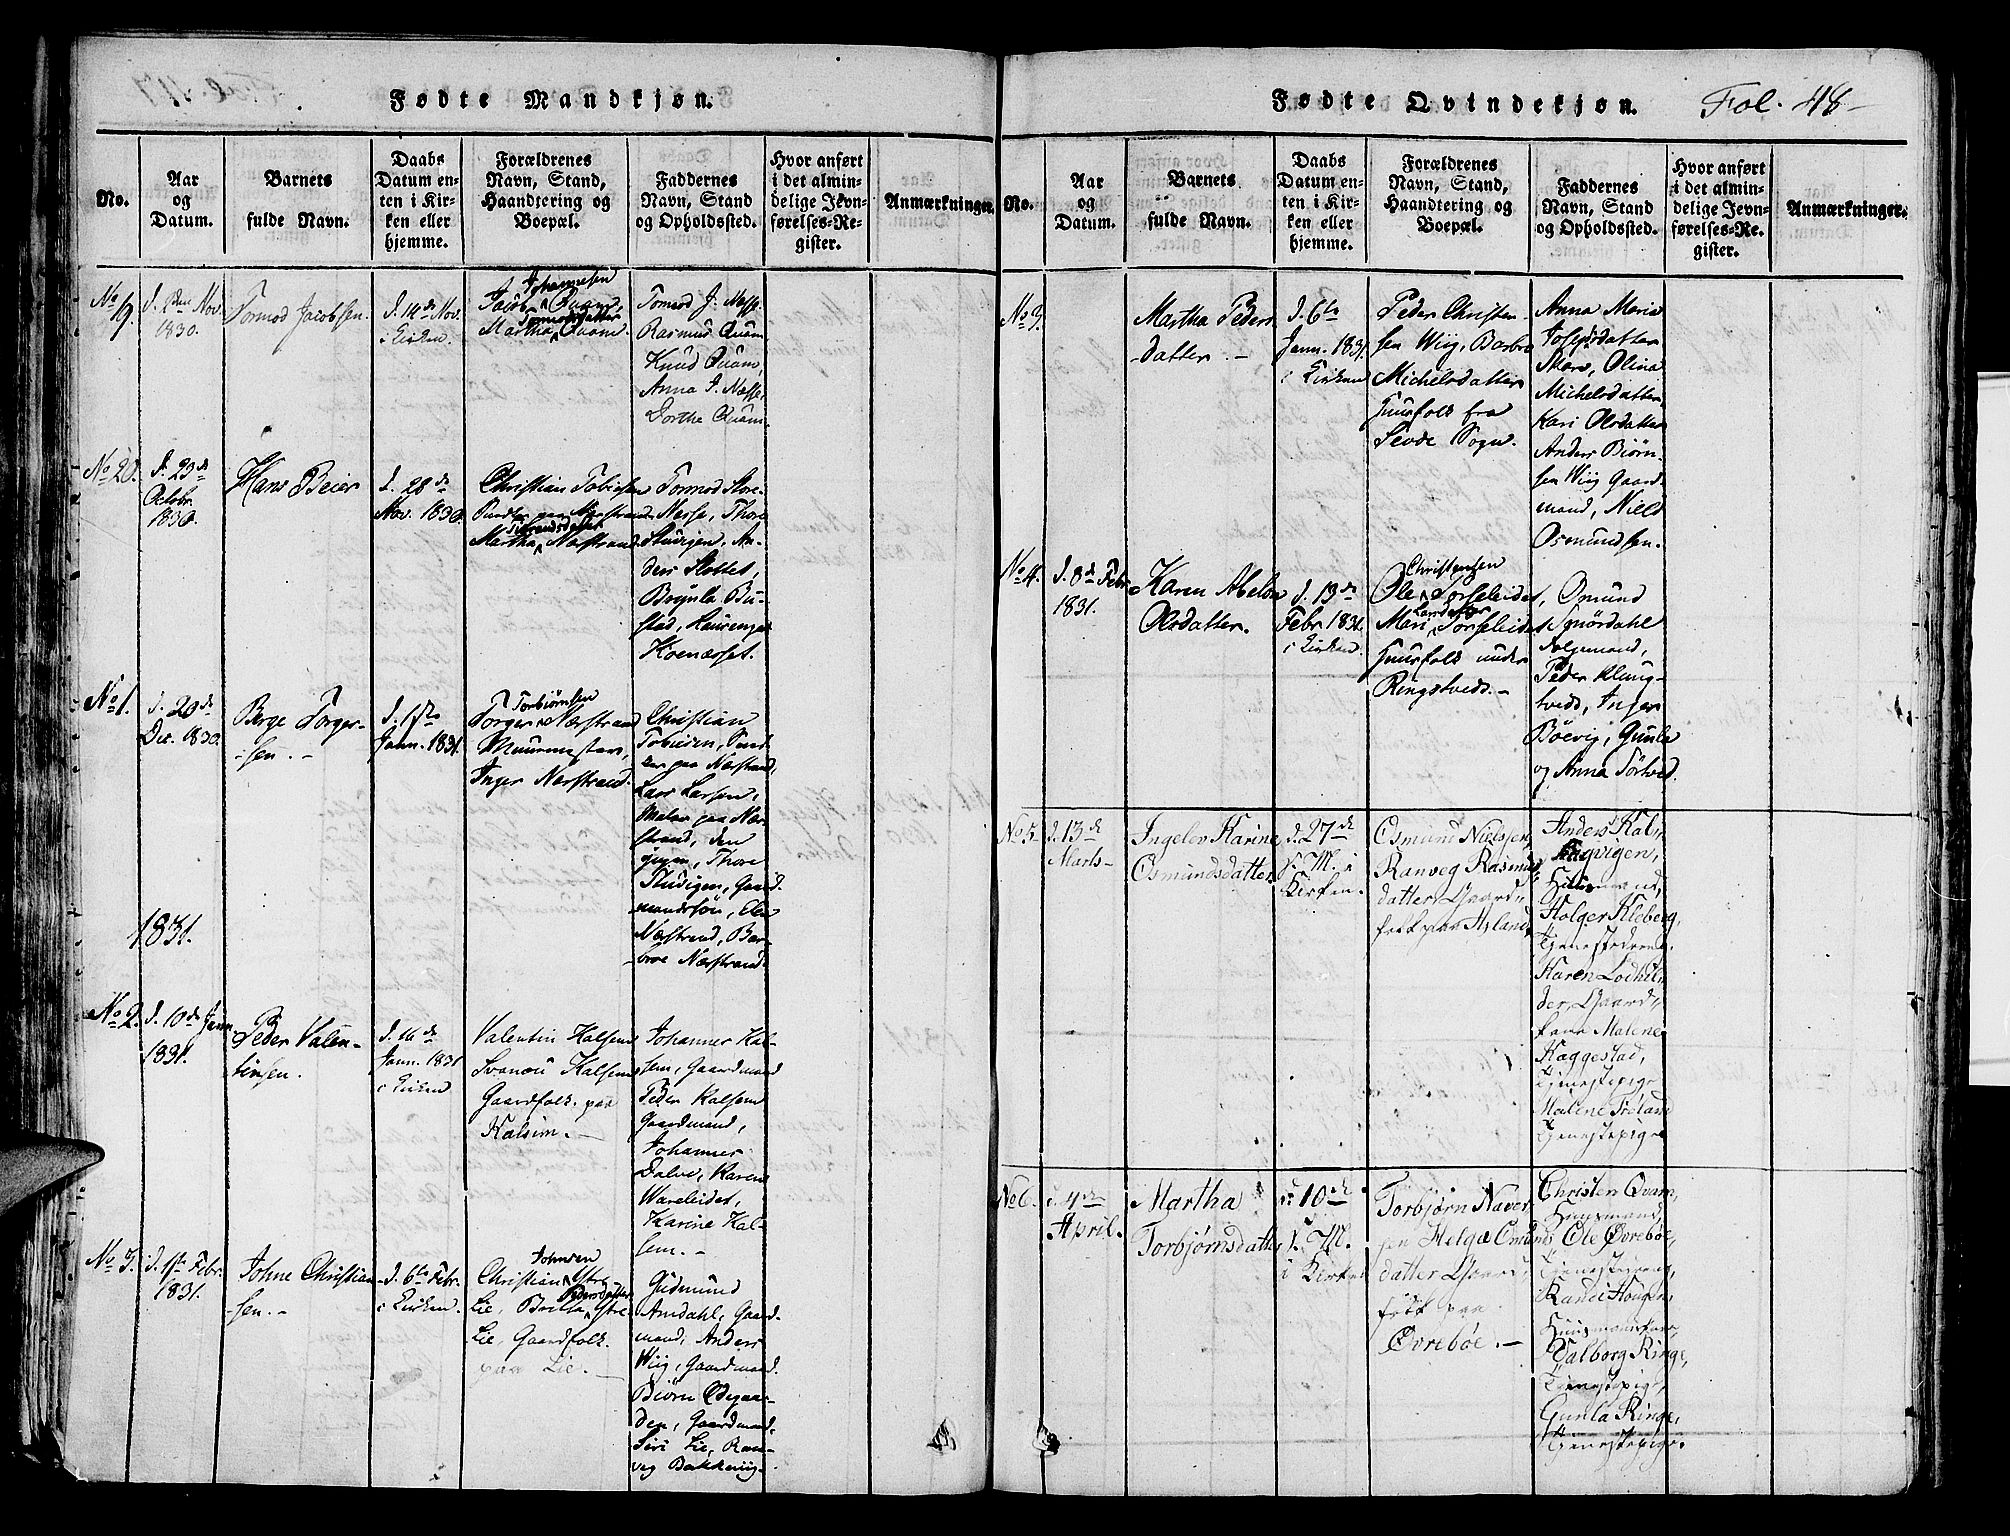 Fødte Mandkjøn.
No.
Aar
og
Datum.
Barnets
fulde Navn.
Daabs
Datum en-
ten i Kir-
ken eller
hjemme.
Forældrenes
Navn, Stand,
Haandtering og
Boepæl.
Faddernes
Navn, Stand
og Opholdssted.
Hvor anført
i det almin-
delige Jevn-
førelses-Re-
gister.
Anmærkninger.
No 19.
d. 2den Nov.
1830.
Tormod Jacobsen.
d. 14de Nov.
i Kirken.
Johannesen
Jacob Qvam,
Tormodsdatter
Martha Qvam.
Tormod J. Næsse
Rasmus Qvam
Knud Qvam,
Anna J. Næsse,
Dorthe Qvam.
No 20.
d. 23de
Octobr.
1830.
Hans Beier
d. 28de
Nov. 1830.
Christian Tobiesen
paa Nærstrand
Martha Nærstrand.
Tormod Store-
Næsse, Thore
Studigen, An-
ders Slottet,
Brynla Bu-
stad, Laurenge
Hoenæsset.
No 1.
d. 20de
Dec. 1830.
Berge Torger-
sen.
d. 1ste
Jann. 1831.
Torbiørnsen
Torger Nærstrand
Muurmester,
Inger Nærstrand.
Christian
Tobiesen, Hand-
ler paa Nærstrand,
Lars Larsen,
Maler paa Nær-
strand, den
yngre, Thore
Studigen, Gaard-
mandssøn, Elen
Nærstrand, Bar-
broe Nærstrand.
1831.
No 2.
d. 10de Jann.
1831.
Peder Valen-
tinsen.
d. 16de
Jann. 1831
i Kirken
Valentin Kalsem
Svanau Kalsem
Gaardfolk paa
Kalsem.
Johannes Kal-
sem, Gaardmand
Peder Kalsem
Gaardmand,
Johannes
Dalve, Karen
Wareleidet,
Karine Kal-
sem.
No 3.
d. 1ste Febr.
1831.
Johne Christian-
sen.
d. 6te Febr.
i Kirken.
Johnsen
Christian Ytre
Pedersdatter
Lie, Britta Ytre
Lie, Gaardfolk
paa Lie.
Gudmund
Amdahl, Gaard-
mand, Anders
Wiig, Gaardmand
Biørn Ødegaar-
den, Gaardmand,
Siri Lie, Ran-
veg Bakkeviig.
Fødte Qvindekjøn.
Fol. 48
No.
Aar
og
Datum.
Barnets
fulde Navn.
Daabs
Datum en-
ten i Kir-
ken eller
hjemme.
Forældrenes
Navn, Stand,
Haandtering og
Boepæl.
Faddernes
Navn, Stand
og Opholdssted.
Hvor anført
i det almin-
delige Jevn-
førelses-Re-
gister.
Anmærkninger.
No 3.
Martha Peders-
datter.
d. 6te
Jann. 1831.
i Kirken
Peder Christen
sen Wiig, Barbro
Michelsdatter
Huusfolk fra
Sevde Sogn.
Anna Maria
Josepsdatter
Michelsdatter
Kari Olsdatter
Anders Biørn-
sen Wiig Gaard-
mand, Niels
Osmundsen.
No 4.
d. 8de Febr.
1831.
Karen Abelone
Olsdatter.
d. 13de
Febr 1831.
i Kirken
Christensen
Ole Torseleidet,
Larsdatter
Mari Torseleidet
Huusfolk under
Ringstveds.
Osmund
Smördahl
Peder Klung-
tveds, Inger
Böevig, Gunla
og Anna Törtved.
No 5.
d. 13de
Marts
Ingelev Karine
Osmundsdatter.
d. 27de
s. M. i
Kirken.
Osmund Nielssen,
Ranveg Rasmus-
datter Gaard-
folk paa Asland.
Anders Kals
Huusmand,
Holger Kleberg,
Tjenestedreng
Karen Lochel-
der, Gaard-
kone Malene
Haggestad,
Tjenestepige
Malene Frøland
Tjenestepige
No 6.
d. 4de
April.
Martha
Torbjørnsdatter
d. 10de
s. M.
i Kirken
Torbjørn Naver
sen Helga Omunds
datter Gaard-
folk paa
Øvrebøe.
Christen Qvam,
Huusmand,
Ole Øvrebøe,
Tjenestedreng,
Randi Hougen,
Valborg Ringe,
Tjenestepige,
Gunla Ringe,
Tjenestepige.